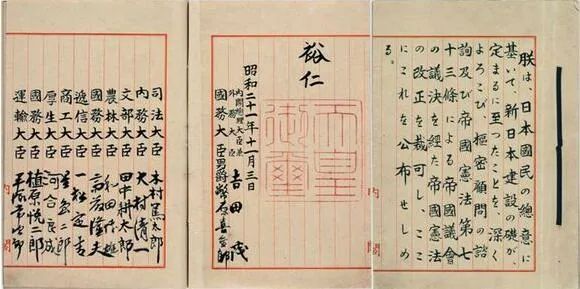 朕は、日本國民の總意に
基いて、新日本建設の礎が、
定まるに至つたことを、深く
よろこび、樞密顧問の諮
詢及び帝國憲法第七
十三條による帝國議會
の議決を經た帝國憲法
の改正を裁可し、ここ
にこれを公布せしめ
る。
内閣
裕仁
天皇御璽
昭和二十一年十一月三日
内閣總理大臣兼
外務大臣 吉田茂
國務大臣 男爵幣原喜重郎
司法大臣 木村篤太郎
内務大臣 大村清一
文部大臣 田中耕太郎
農林大臣 和田博雄
國務大臣 斎藤隆夫
逓信大臣 一松定吉
商工大臣 星島二郎
厚生大臣 河合良成
國務大臣 植原悦二郎
運輸大臣 平塚常次郎
内閣